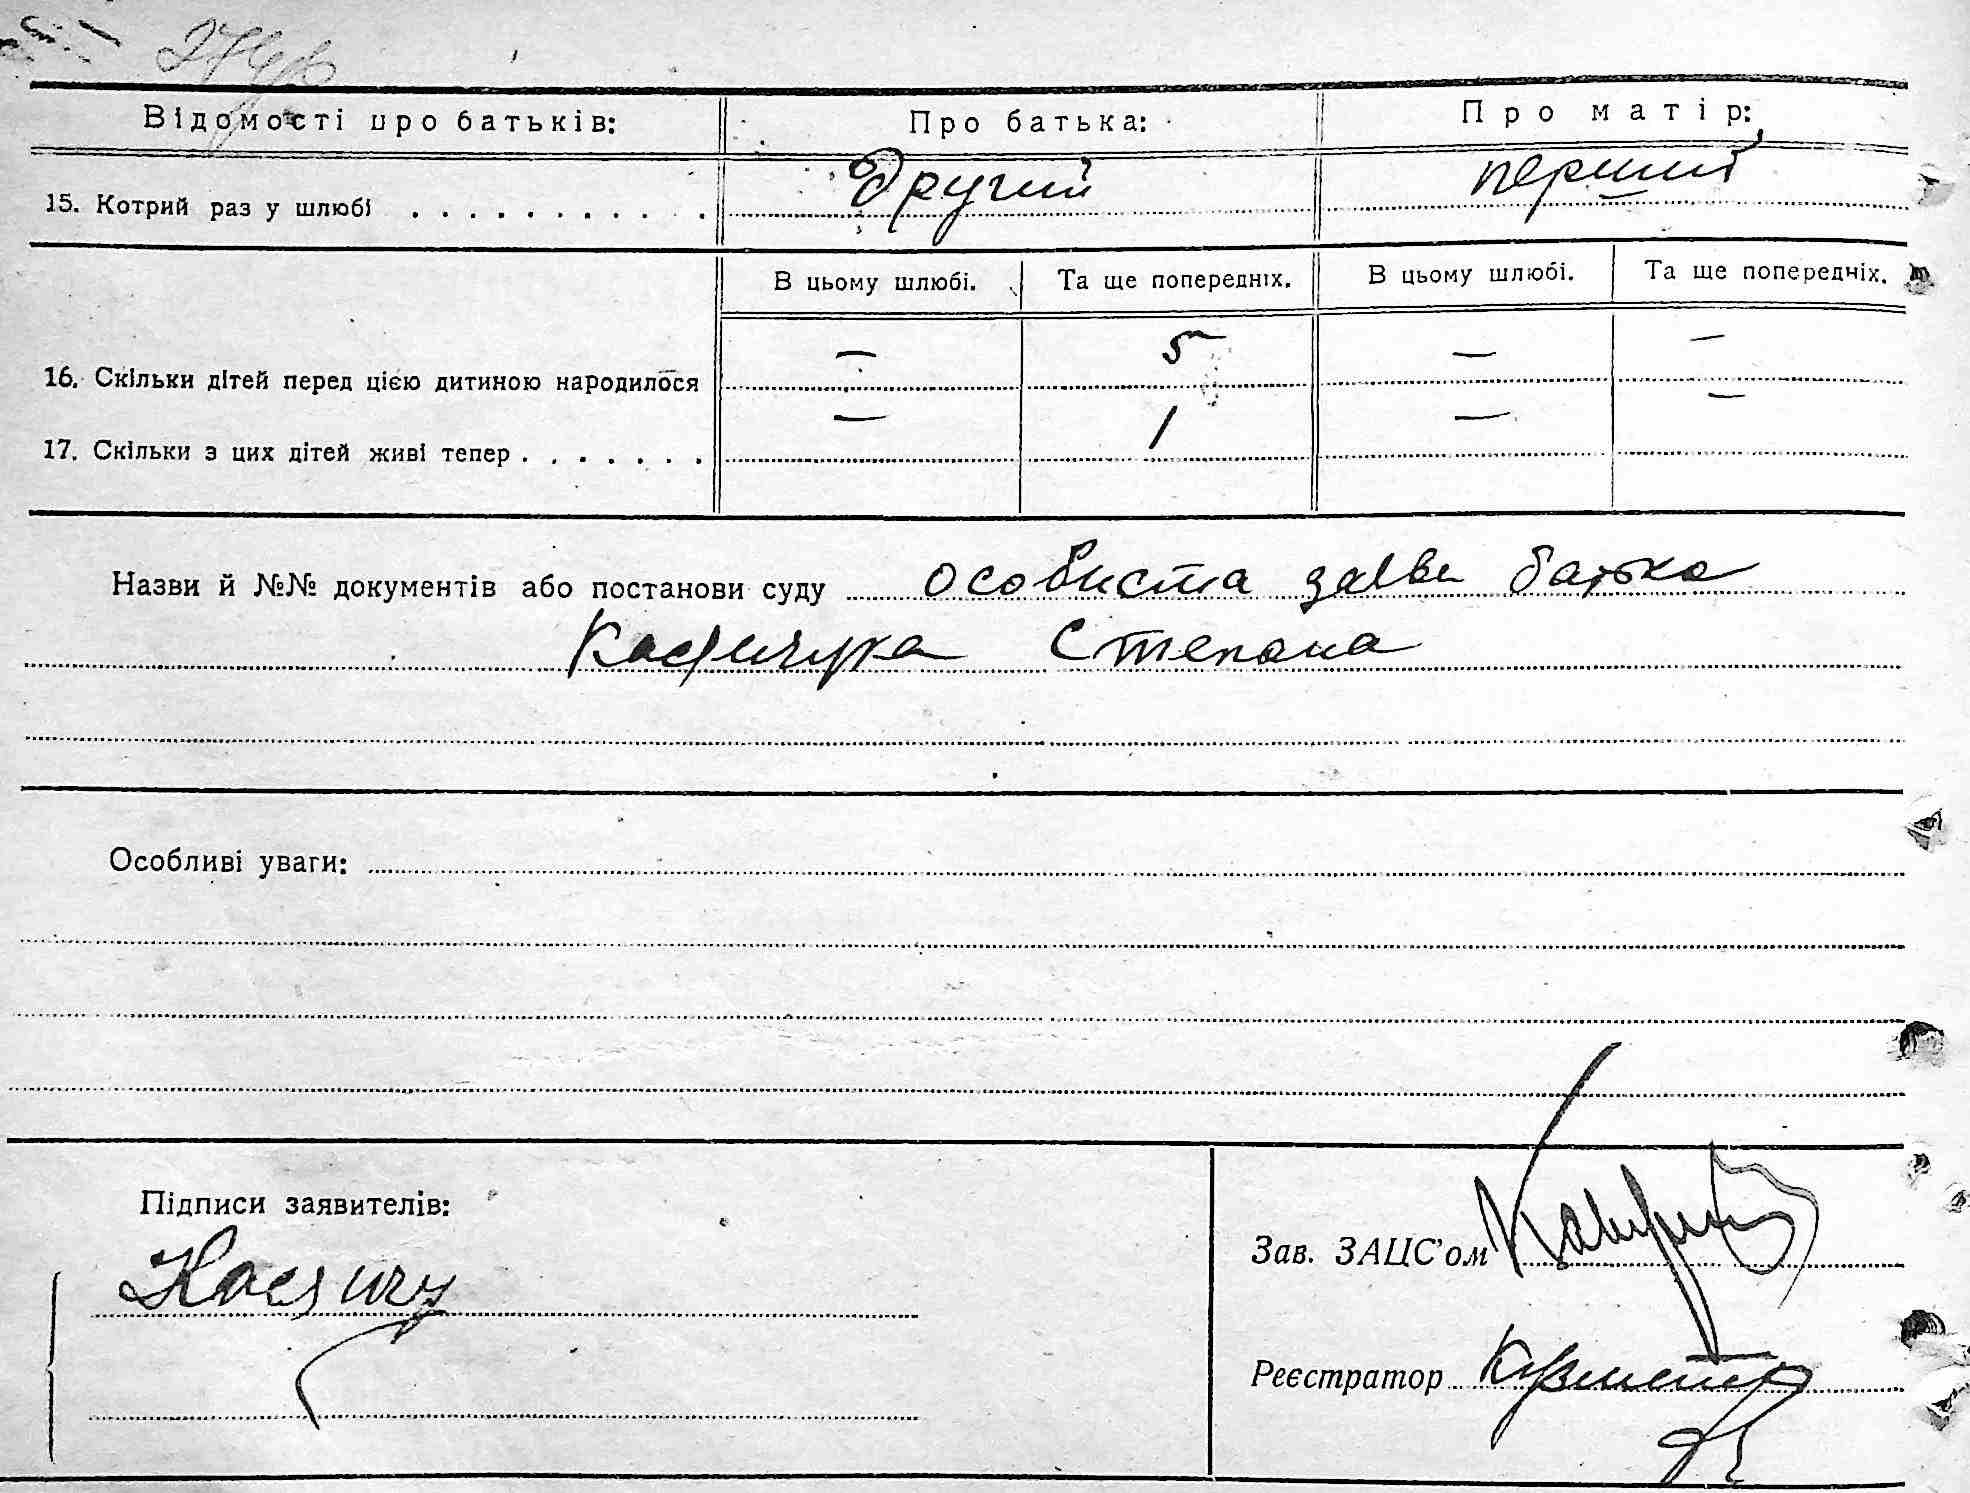 Відомості про батьків: Про батька: Про матір:
15. Котрий раз у шлюбі . . . . . . . . . . . другий перший
В цьому шлюбі. Та ще попередніх. В цьому шлюбі. Та ще попередніх.
16. Скільки дітей перед цією дитиною народилося — 5 — —
17. Скільки з цих дітей живі тепер . . . . . . . — 1 — —
Назви й №№ документів або постанови суду особиста заява батька
Степана
Особливі уваги:
Підписи заявителів:
Зав. ЗАЦС'ом
Реєстратор